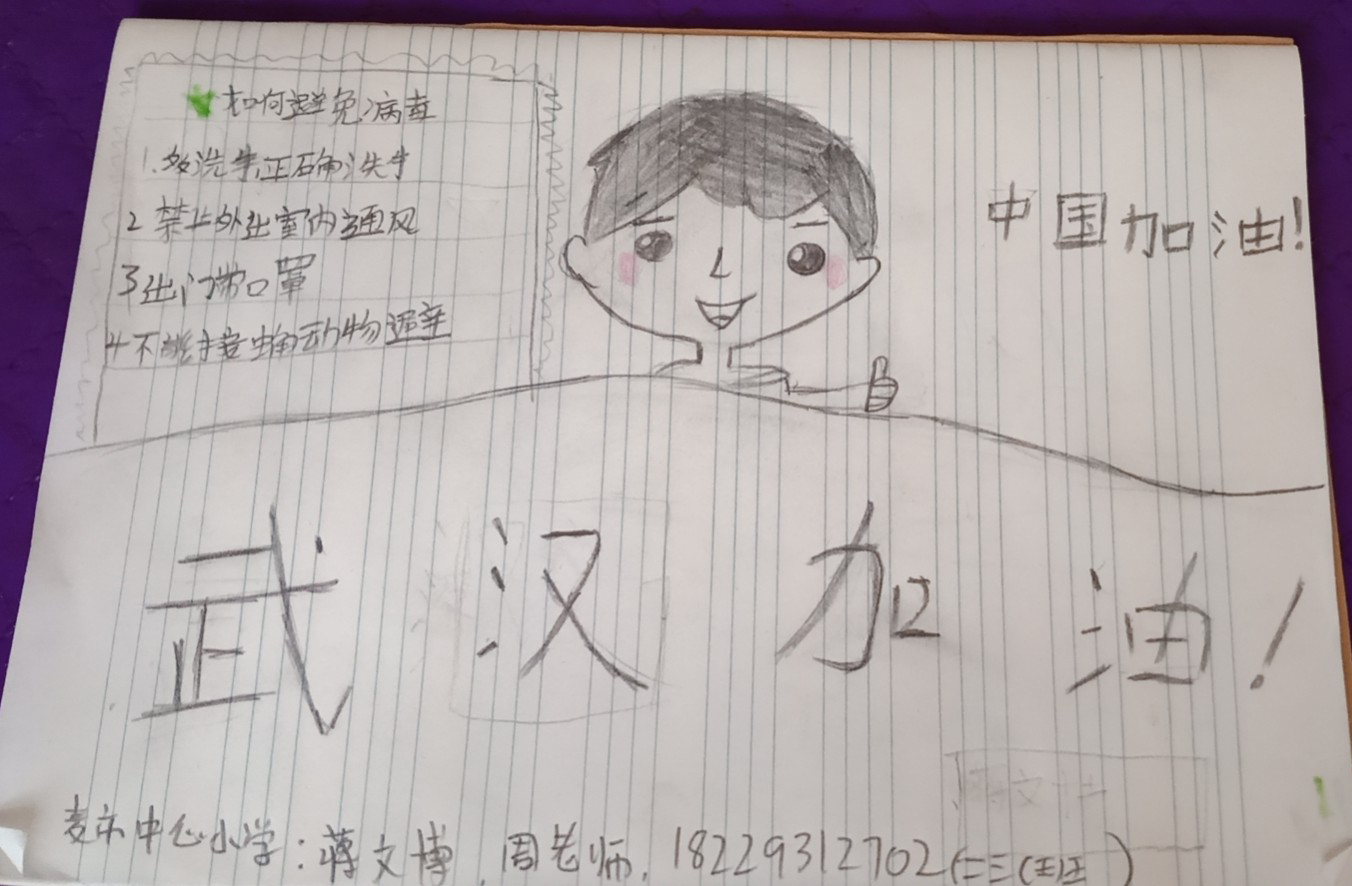 如何避免病毒
1.多洗手,正确洗手
2 禁止外出室内通风
3出门带口罩
4不接触动物
中国加油!
武汉加油!
麦市中心小学:蒋文博,周老师,18229312702